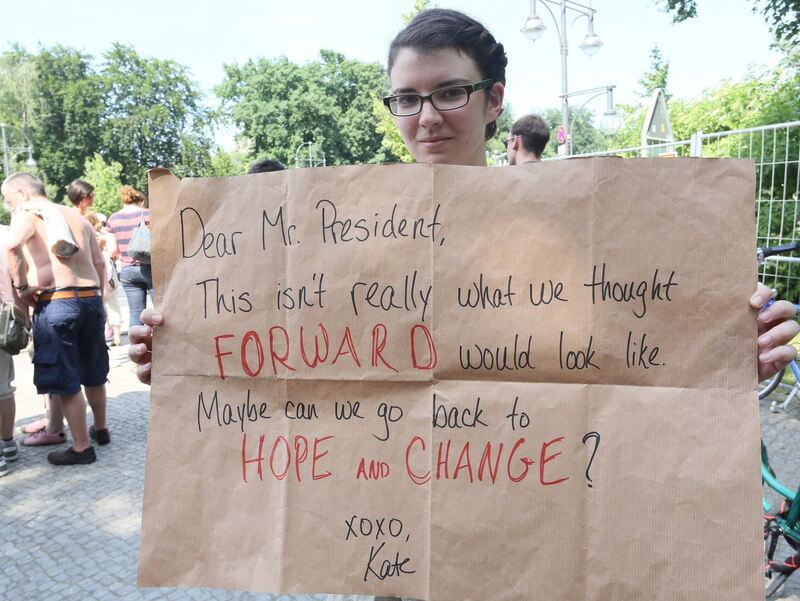 Dear Mr. President,
This isn't really what we thought
FORWARD would look like.
Maybe can we go back to
HOPE AND CHANGE?
xoxo,
Kate